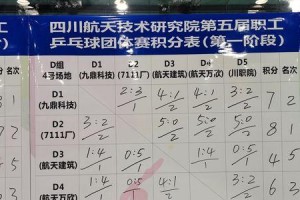 四川航天技术研究院第五届职工
乒乓球团体赛积分表(第一阶段)
分 名次 D组 4号场地 D1 (九鼎科技) D2 (7111厂) D3 (航天建筑) D4 (航天万欣) D5 (川职院) 积分 名次
D1 (九鼎科技) 2:3/1 4:1/2 4:1/2 3:2/2 7 2
D2 (7111厂) 3:2/2 5:0/2 5:0/2 5:0/2 8 1
D3 (航天建筑) 1:4/1 0:5/1 1:4/1 3:2/2 5 4
D4 (航天万欣) 1:4/1 0:5/1 4:1/2 3:2/2 6 3